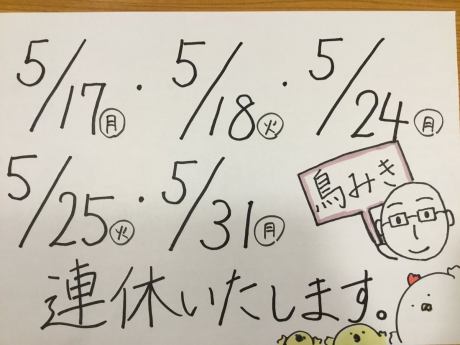 5/17㊊・5/18㊋・5/24㊊
5/25㊋・5/31㊊
鳥みき
連休いたします。